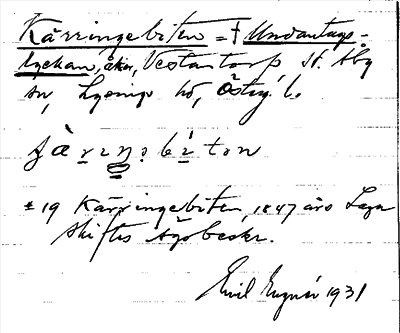 Kärringebiten = † Undantags-
lyckan, åker, Vestantorp St. Åby
sn, Lysings hd, Östg. l.
± 19 Kärringebiten, 1847 års Laga
skiftes ägobeskr.
Emil 1931